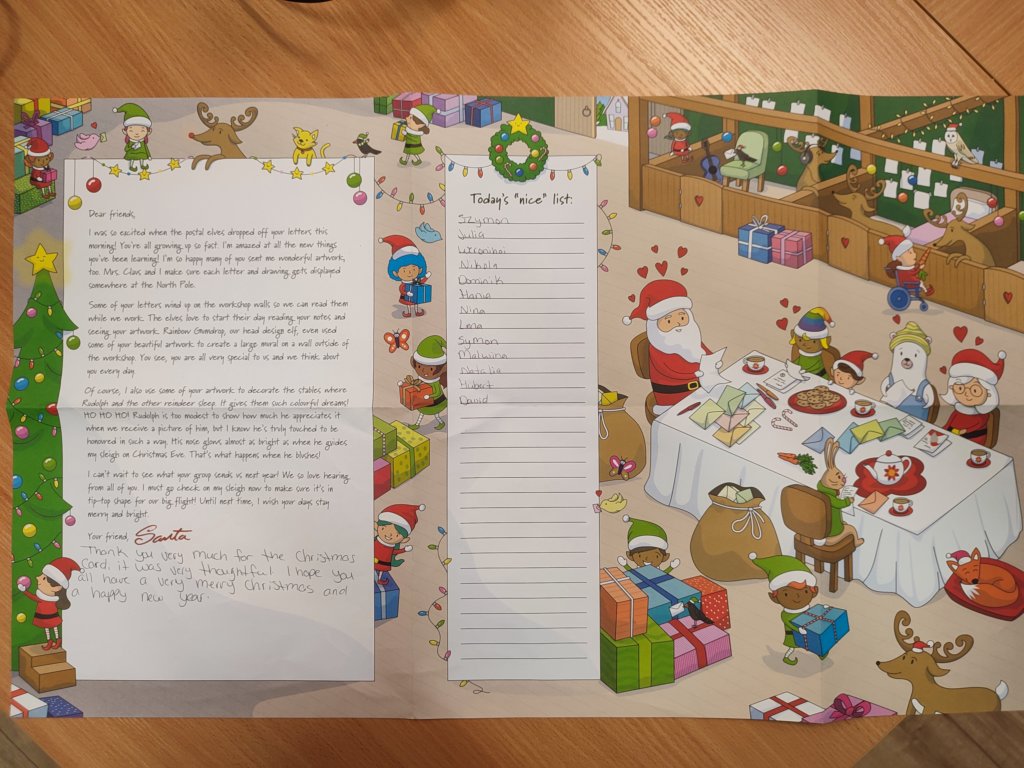 Dear friends,
I was so excited when the postal elves dropped off your letters this
morning! You're all growing up so fast. I'm amazed at all the new things
you've been learning! I'm so happy many of you sent me wonderful artwork,
too. Mrs. Claus and I make sure each letter and drawing gets displayed
somewhere at the North Pole.
Some of your letters wind up on the workshop walls so we can read them
while we work. The elves love to start their day reading your notes and
seeing your artwork. Rainbow Gumdrop, our head design elf, even used
some of your beautiful artwork to create a large mural on a wall outside of
the workshop. You see, you are all very special to us and we think about
you every day.
Of course, I also use some of your artwork to decorate the stables where
Rudolph and the other reindeer sleep. It gives them such colourful dreams!
HO HO HO! Rudolph is too modest to show how much he appreciates it
when we receive a picture of him, but I know he's truly touched to be
honoured in such a way. His nose glows almost as bright as when he guides
my sleigh on Christmas Eve. That's what happens when he blushes!
I can't wait to see what your group sends us next year! We so love hearing
from all of you. I must go check on my sleigh now to make sure it's in
tip-top shape for our big flight! Until next time, I wish your days stay
merry and bright.
Your friend, Santa
Thank you very much for the Christmas
Card, it was very thoughtful. I hope you
all have a very merry Christmas and
a happy new year.
Today's "nice" list:
Szymon
Julia
Nikola
Dominik
Hania
Nina
Lena
Symon
Malwina
Natalia
Hubert
Dawid